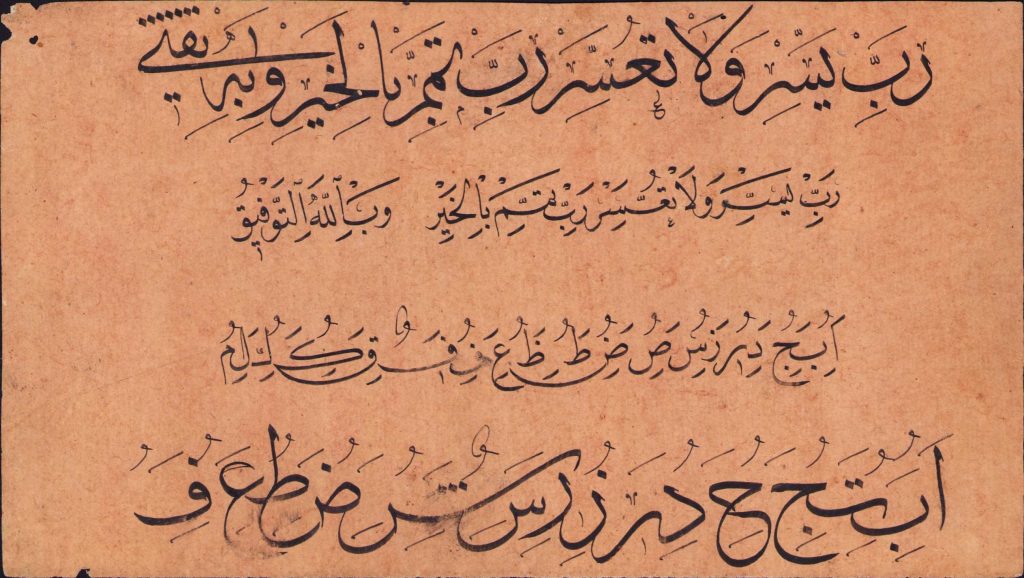 رَبِّ يَسِّرْ وَلَا تُعَسِّرْ رَبِّ تَمِّمْ بِالْخَيْرِ وَبِهِ ثِقَتِي
رَبِّ يَسِّرْ وَلَا تُعَسِّرْ رَبِّ تَمِّمْ بِالْخَيْرِ وَبِاللّٰهِ التَّوْفِيقُ
ا ب ج د ر ز س ص ض ط ظ ع ف ق ك ل م
ا ب ت ج ح د ر ز س ض ط ع ف